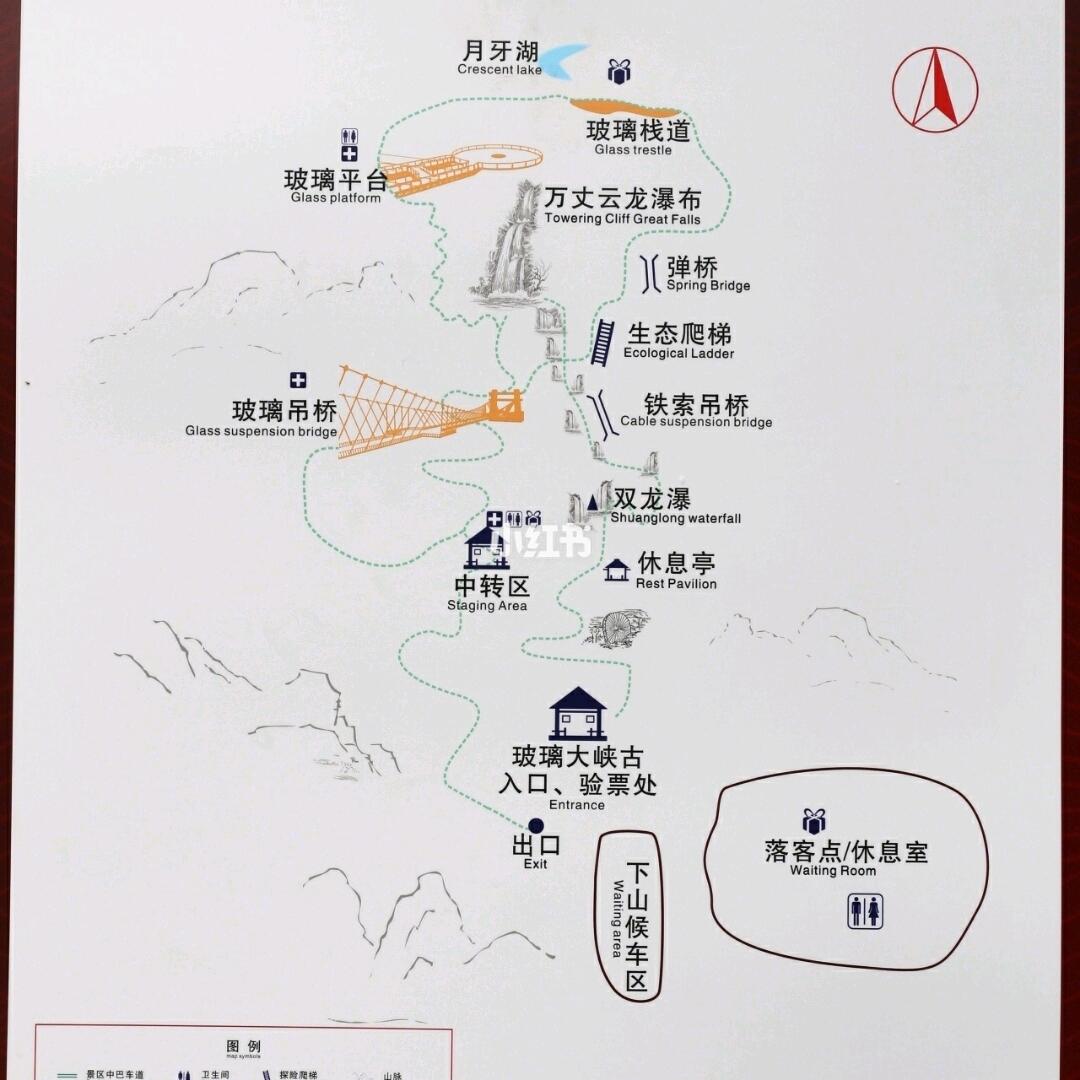 月牙湖
Crescent lake
玻璃栈道
Glass trestle
玻璃平台
Glass platform
万丈云龙瀑布
Towering Cliff Great Falls
弹桥
Spring Bridge
生态爬梯
Ecological Ladder
玻璃吊桥
Glass suspension bridge
铁索吊桥
Cable suspension bridge
双龙瀑
Shuanglong waterfall
小红书
休息亭
Rest Pavilion
中转区
Staging Area
玻璃大峡古
入口、验票处
Entrance
出口
Exit
落客点/休息室
Waiting Room
下山候车区
Waiting area
图例
map symbols
景区中巴车道
卫生间
探险爬梯
山脉